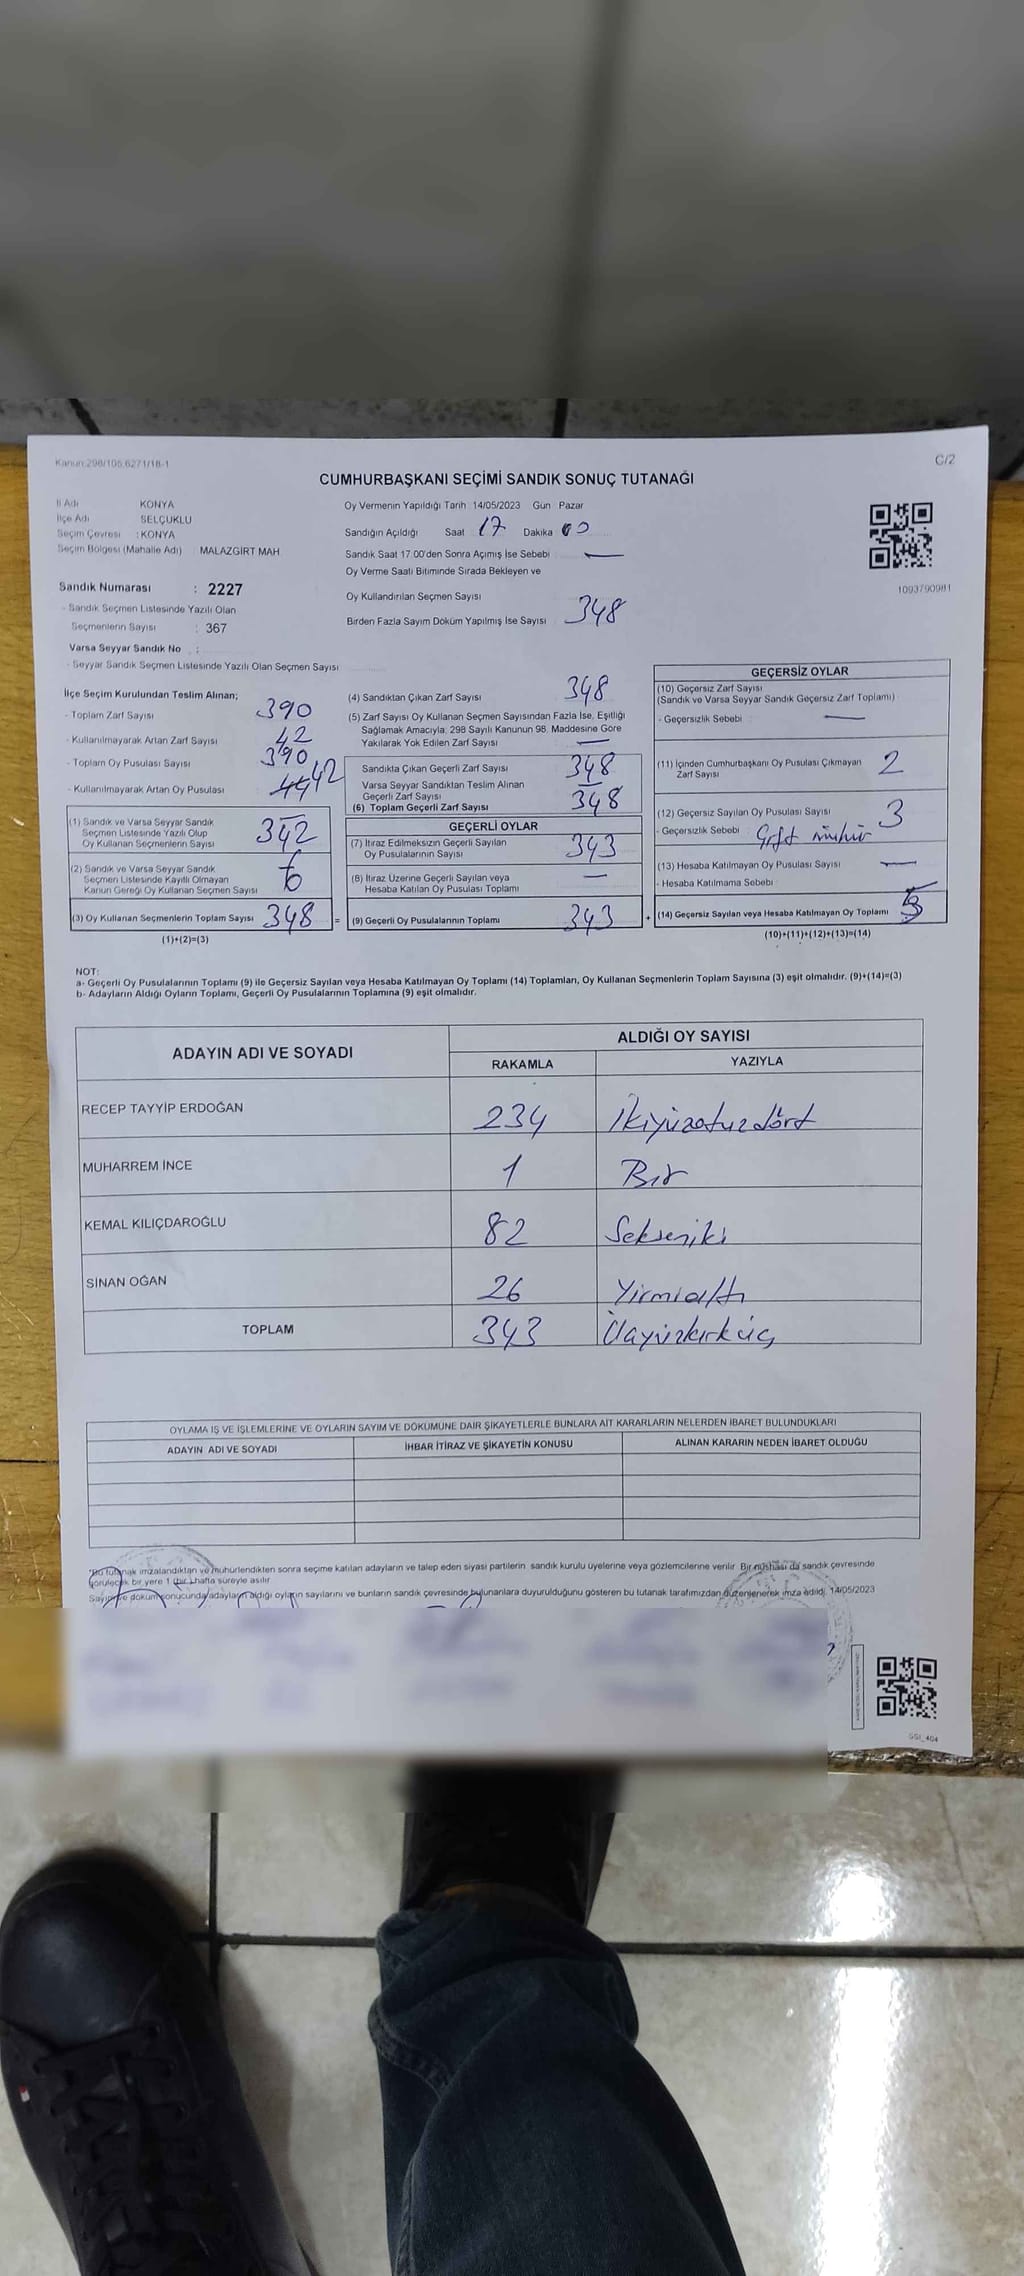 Kanun:298/105,6271/18-1
C/2
CUMHURBAŞKANI SEÇİMİ SANDIK SONUÇ TUTANAĞI
İl Adı KONYA
İlçe Adı SELÇUKLU
Seçim Çevresi : KONYA
Seçim Bölgesi (Mahalle Adı) MALAZGİRT MAH
Sandık Numarası : 2227
- Sandık Seçmen Listesinde Yazılı Olan
Seçmenlerin Sayısı : 367
Varsa Seyyar Sandık No :
- Seyyar Sandık Seçmen Listesinde Yazılı Olan Seçmen Sayısı
Oy Vermenin Yapıldığı Tarih 14/05/2023 Gün Pazar
Sandığın Açıldığı Saat 17 Dakika 00
Sandık Saat 17.00'den Sonra Açımış İse Sebebi —
Oy Verme Saati Bitiminde Sırada Bekleyen ve
Oy Kullandırılan Seçmen Sayısı
Birden Fazla Sayım Döküm Yapılmış İse Sayısı 348
1093790981
İlçe Seçim Kurulundan Teslim Alınan;
- Toplam Zarf Sayısı 390
- Kullanılmayarak Artan Zarf Sayısı 42
- Toplam Oy Pusulası Sayısı 390
- Kullanılmayarak Artan Oy Pusulası 42
(1) Sandık ve Varsa Seyyar Sandık
Seçmen Listesinde Yazılı Olup
Oy Kullanan Seçmenlerin Sayısı 342
(2) Sandık ve Varsa Seyyar Sandık
Seçmen Listesinde Kayıtlı Olmayan
Kanun Gereği Oy Kullanan Seçmen Sayısı 6
(3) Oy Kullanan Seçmenlerin Toplam Sayısı 348 =
(1)+(2)=(3)
(4) Sandıktan Çıkan Zarf Sayısı 348
(5) Zarf Sayısı Oy Kullanan Seçmen Sayısından Fazla İse, Eşitliği
Sağlamak Amacıyla; 298 Sayılı Kanunun 98. Maddesine Göre
Yakılarak Yok Edilen Zarf Sayısı —
Sandıkta Çıkan Geçerli Zarf Sayısı 348
Varsa Seyyar Sandıktan Teslim Alınan
Geçerli Zarf Sayısı —
(6) Toplam Geçerli Zarf Sayısı 348
GEÇERLİ OYLAR
(7) İtiraz Edilmeksizin Geçerli Sayılan
Oy Pusulalarının Sayısı 343
(8) İtiraz Üzerine Geçerli Sayılan veya
Hesaba Katılan Oy Pusulası Toplamı —
(9) Geçerli Oy Pusulalarının Toplamı 343 +
GEÇERSİZ OYLAR
(10) Geçersiz Zarf Sayısı
(Sandık ve Varsa Seyyar Sandık Geçersiz Zarf Toplamı)
- Geçersizlik Sebebi —
(11) İçinden Cumhurbaşkanı Oy Pusulası Çıkmayan
Zarf Sayısı 2
(12) Geçersiz Sayılan Oy Pusulası Sayısı 3
- Geçersizlik Sebebi Çift mühür
(13) Hesaba Katılmayan Oy Pusulası Sayısı —
- Hesaba Katılmama Sebebi
(14) Geçersiz Sayılan veya Hesaba Katılmayan Oy Toplamı 5
(10)+(11)+(12)+(13)=(14)
NOT:
a- Geçerli Oy Pusulalarının Toplamı (9) ile Geçersiz Sayılan veya Hesaba Katılmayan Oy Toplamı (14) Toplamları, Oy Kullanan Seçmenlerin Toplam Sayısına (3) eşit olmalıdır. (9)+(14)=(3)
b- Adayların Aldığı Oyların Toplamı, Geçerli Oy Pusulalarının Toplamına (9) eşit olmalıdır.
ADAYIN ADI VE SOYADI ALDIĞI OY SAYISI
RAKAMLA YAZIYLA
RECEP TAYYİP ERDOĞAN 234 İkiyüzotuzdört
MUHARREM İNCE 1 Bir
KEMAL KILIÇDAROĞLU 82 Sekseniki
SİNAN OĞAN 26 Yirmialtı
TOPLAM 343 Üçyüzkırküç
OYLAMA İŞ VE İŞLEMLERİNE VE OYLARIN SAYIM VE DÖKÜMÜNE DAİR ŞİKAYETLERLE BUNLARA AİT KARARLARIN NELERDEN İBARET BULUNDUKLARI
ADAYIN ADI VE SOYADI İHBAR İTİRAZ VE ŞİKAYETİN KONUSU ALINAN KARARIN NEDEN İBARET OLDUĞU
*Bu tutanak imzalandıktan ve mühürlendikten sonra seçime katılan adayların ve talep eden siyasi partilerin, sandık kurulu üyelerine veya gözlemcilerine verilir. Bir nüshası da sandık çevresinde
görülecek bir yere 1 (bir) hafta süreyle asılır.
Sayım ve döküm sonucunda adayların aldığı oyların sayılarını ve bunların sandık çevresinde bulunanlara duyurulduğunu gösteren bu tutanak tarafımızdan düzenlenerek imza edildi. 14/05/2023
SSİ_404